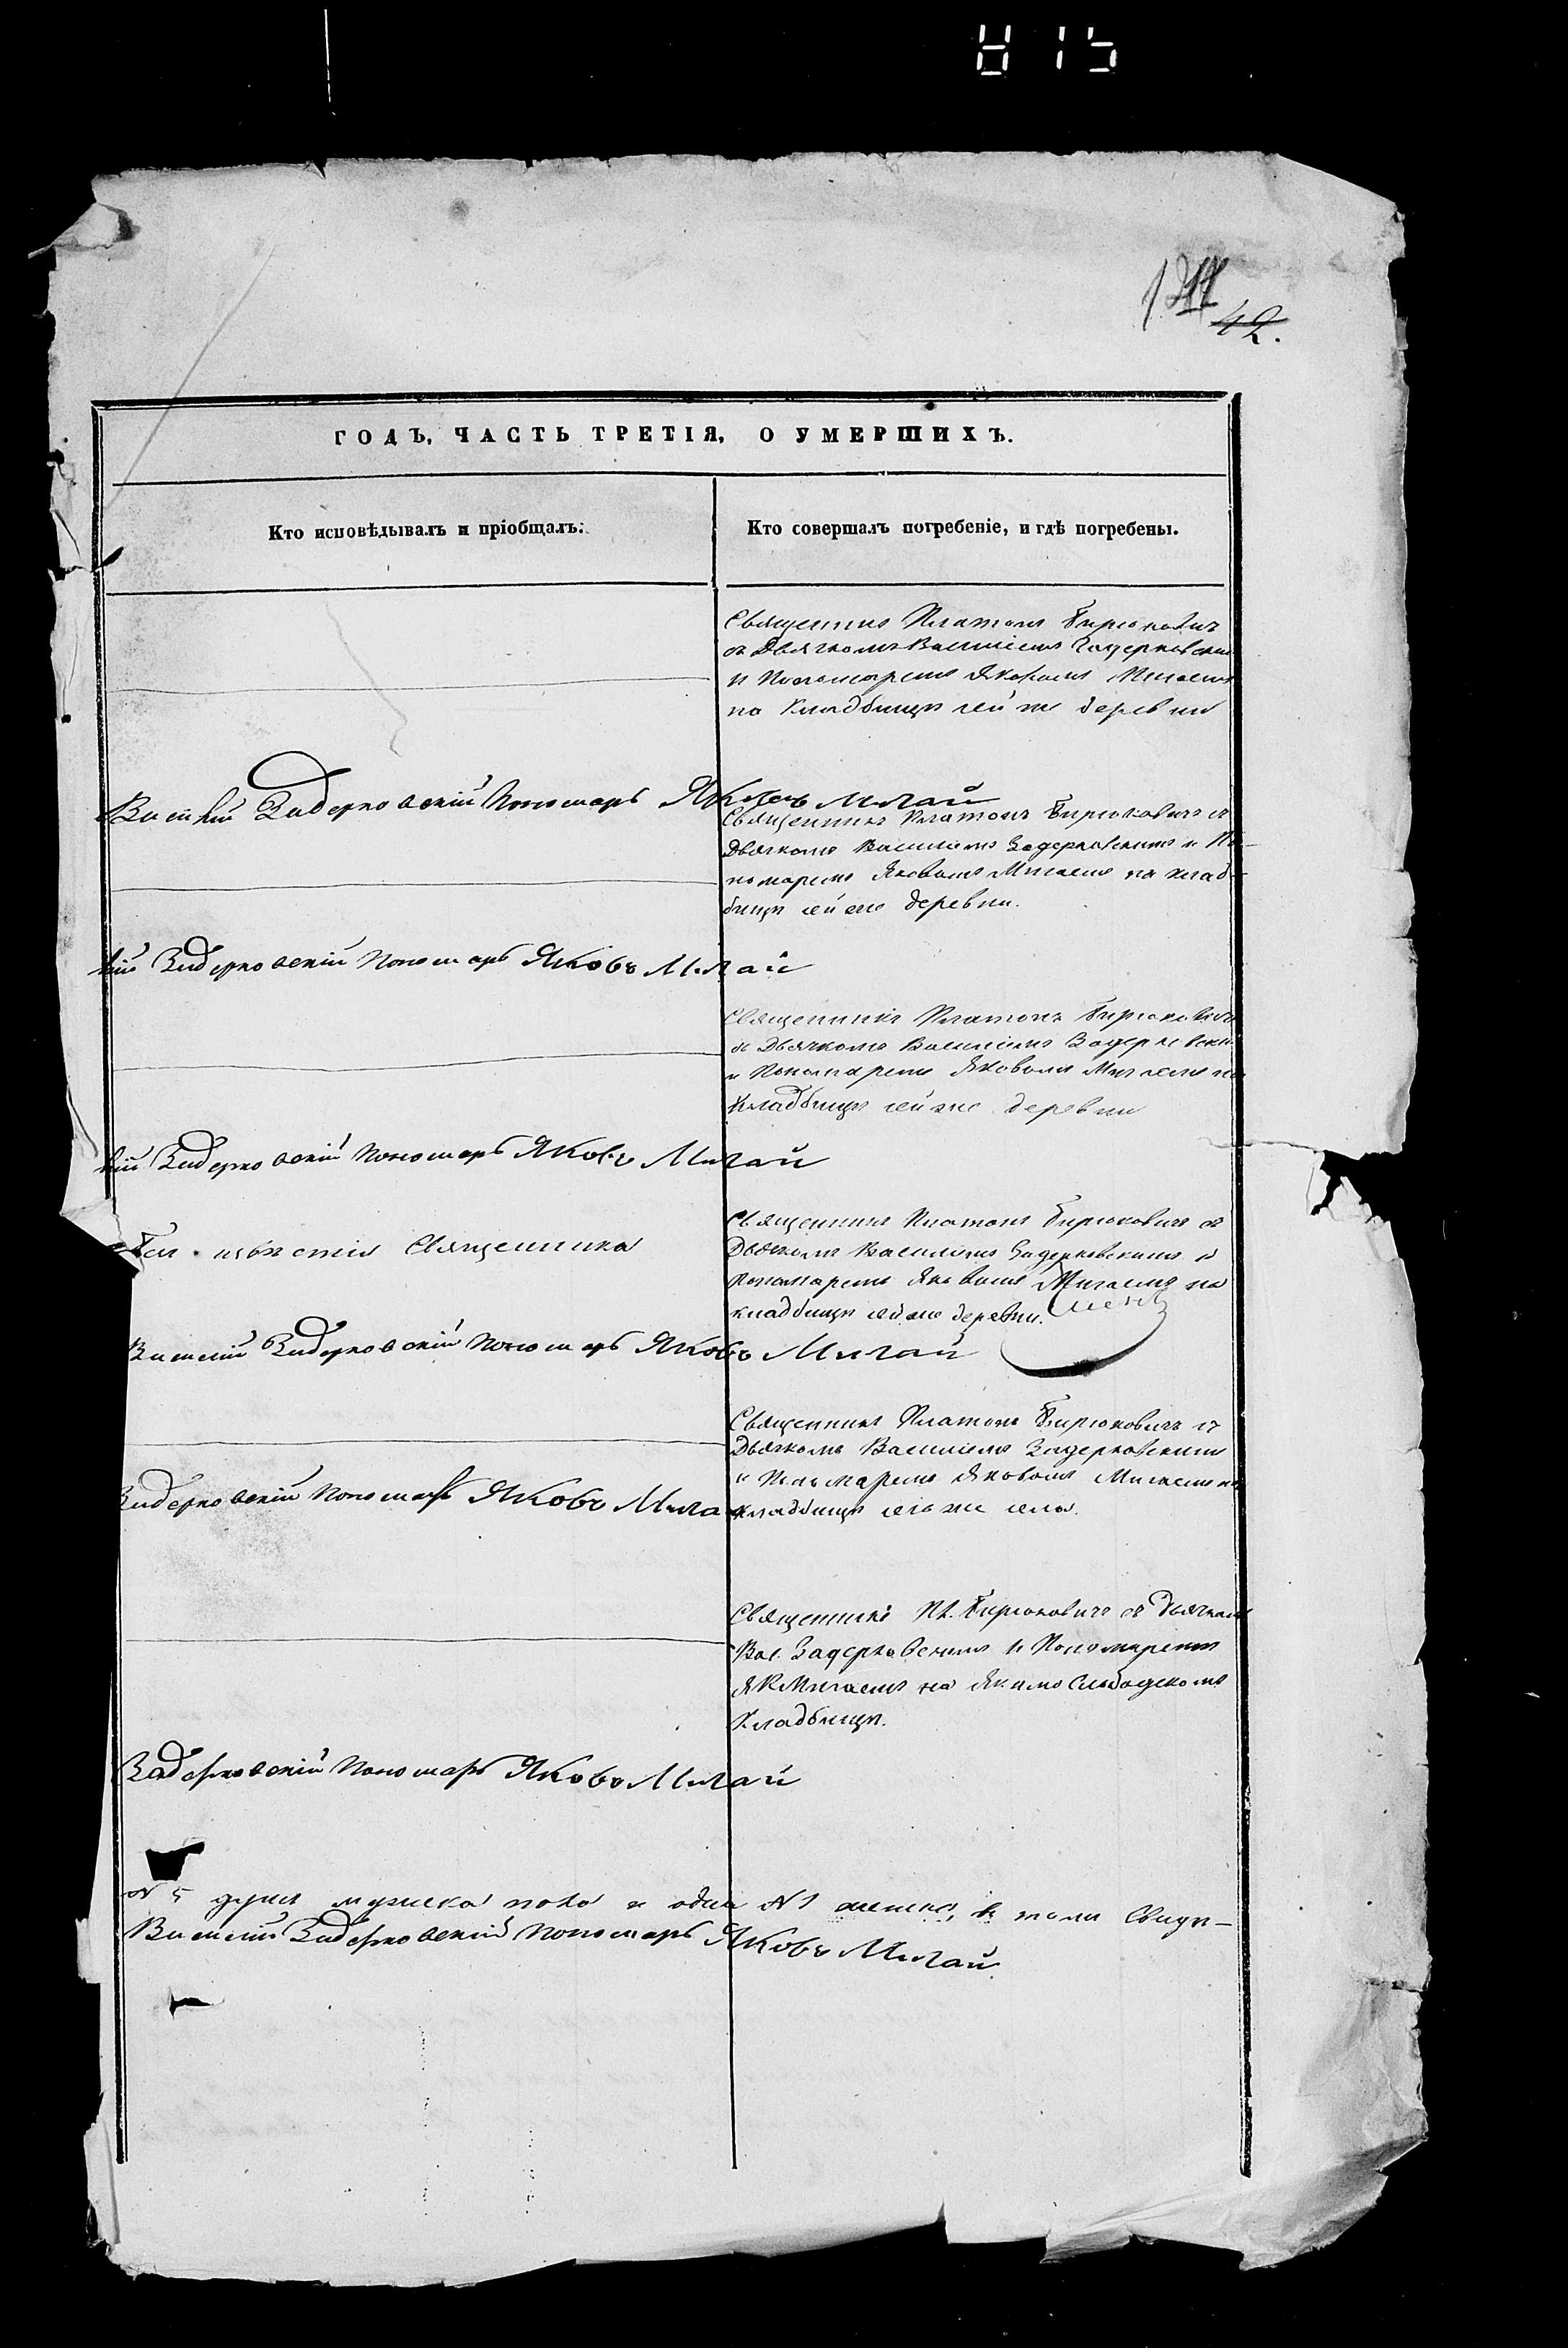 815
42.
ГОДЪ, ЧАСТЬ ТРЕТІЯ, О УМЕРШИХЪ.
Кто исповѣдывалъ и пріобщалъ:
Кто совершалъ погребеніе, и гдѣ погребены.
Священникъ Платонъ Бирюковичъ
съ Дьячкомъ Василіемъ Задерковским
и Пономаремъ Яковомъ Мигаемъ
на кладбищѣ сей же деревни
Василій Задерковскій Пономарь Яковъ Мигай
Священникъ Платонъ Бирюковичъ съ
Дьячкомъ Василіемъ Задерковскимъ и По-
номаремъ Яковомъ Мигаемъ на клад-
бищѣ сей же деревни.
лій Задерковскій Пономарь Яковъ Мигай
Священникъ Платонъ Бирюковичъ
съ Дьячкомъ Василіемъ Задерковски
и Пономаремъ Яковомъ Мигаемъ на
кладбищѣ сей же деревни
лій Задерковскій Пономарь Яковъ Мигай
Священникъ Платонъ Бирюковичъ съ
Без извѣстія Священника
Дьячкомъ Василіемъ Задерковскимъ и
Пономаремъ Яковомъ Мигаемъ на
кладбищѣ сей же деревни.
Василій Задерковскій Пономарь Яковъ Мигай
Священникъ Платонъ Бирюковичъ съ
Дьячкомъ Василіемъ Задерковскимъ
и Пономаремъ Яковомъ Мигаемъ на
Задерковскій Пономарь Яковъ Мигай
кладбищѣ сего же села.
Священникъ Пл. Бирюковичъ съ Дьячкомъ
Вас. Задерковскимъ и Пономаремъ
Як Мигаемъ на Якимо Слободскомъ
Кладбищѣ.
Задерковскій Пономарь Яковъ Мигай
№ 5 душъ мужеска пола и одна №1 женска, в томъ Свидѣ-
Василій Задерковскій Пономарь Яковъ Мигай